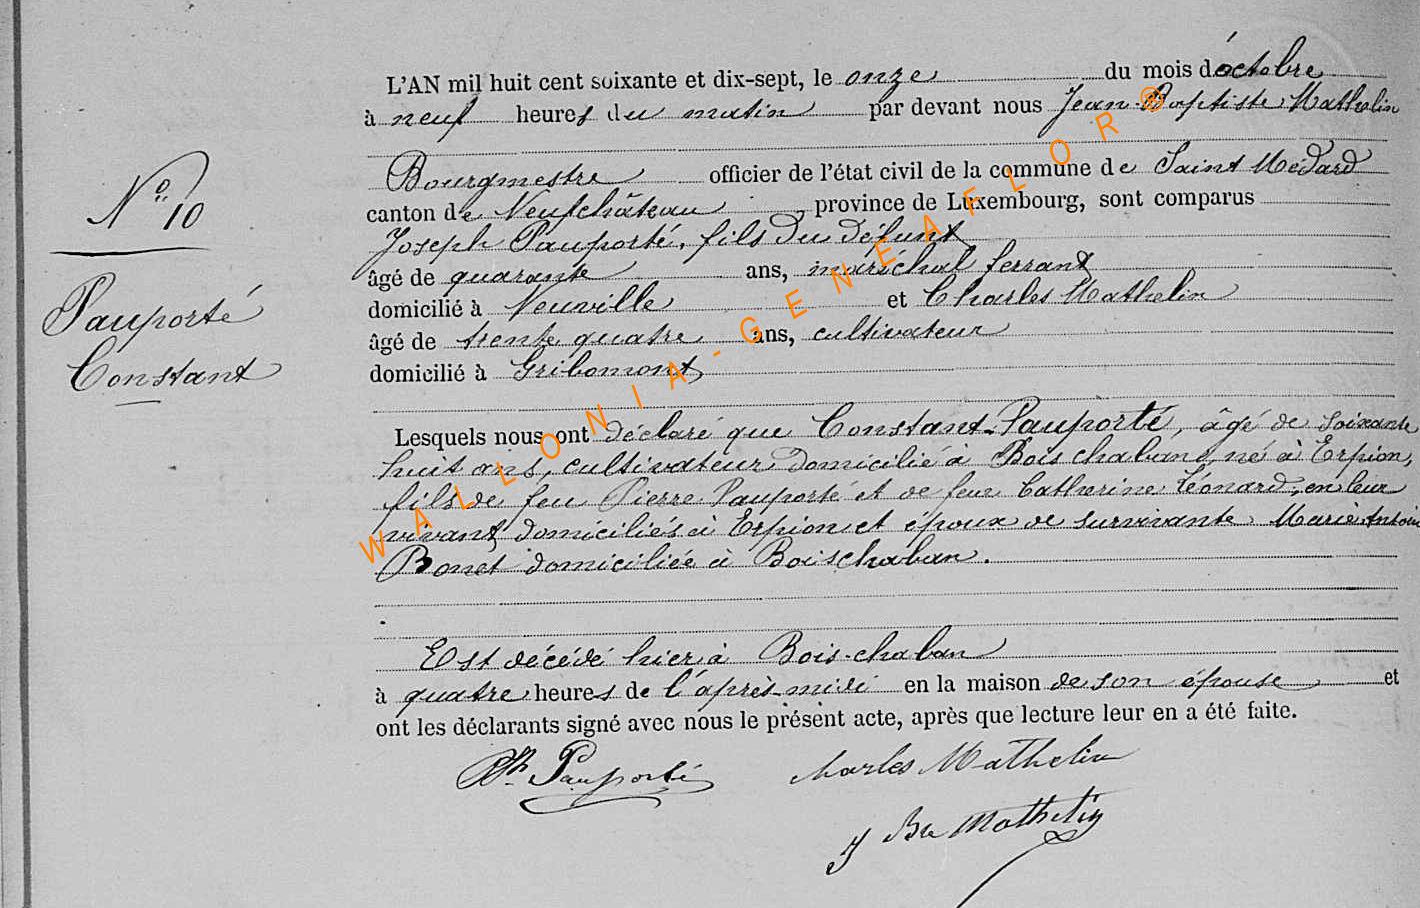 L'AN mil huit cent soixante et dix-sept, le onze du mois d'octobre
à neuf heures du matin par devant nous Jean-Baptiste Mathelin
Bourgmestre officier de l'état civil de la commune de Saint Médard
N° 10
canton de Neufchâteau, province de Luxembourg, sont comparus
Joseph Pauporté, fils du défunt
âgé de quarante ans, maréchal ferrant
domicilié à Neuville et Charles Mathelin
Pauporté
âgé de trente quatre ans, cultivateur
Constant
domicilié à Gribomont,
Lesquels nous ont déclaré que Constant Pauporté, âgé de soixante
huit ans, cultivateur domicilié à Bois chaban, né à Erpion,
fils de feu Pierre Pauporté et de feue Catherine Léonard, en leur
vivant domiciliés à Erpion et époux de survivante Marie Antoi
Bonet domiciliée à Boischaban.
Est décédé hier à Bois-chaban
à quatre heures de l'après-midi en la maison de son épouse et
ont les déclarants signé avec nous le présent acte, après que lecture leur en a été faite.
Pauporté Charles Mathelin
J Bte Mathelin
WALLONIA-GENEAFLOR®